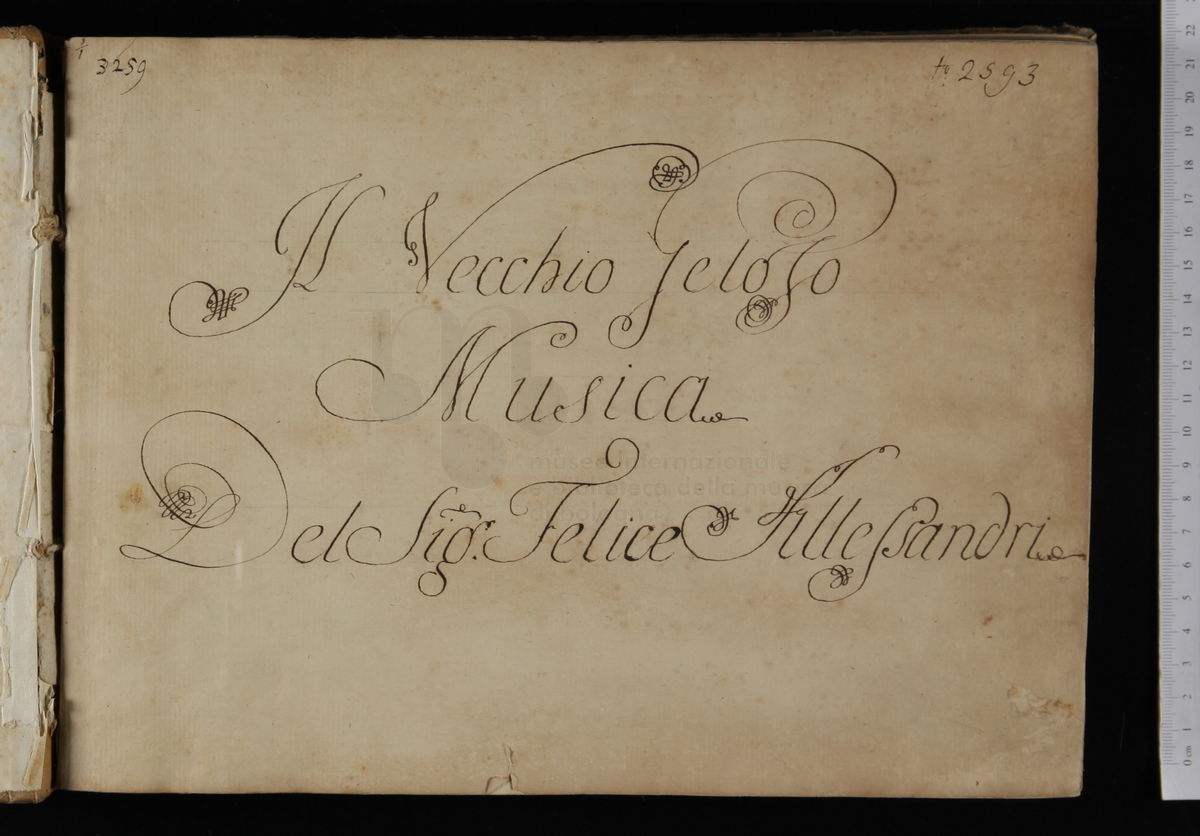 3259
to 2593
Il Vecchio Geloso
Musica
museo internazionale
e biblioteca della musica
di bologna
Del Sigr. Felice Allessandri
22
21
20
19
18
17
16
15
14
13
12
11
10
9
8
7
6
5
4
3
2
1
0 cm